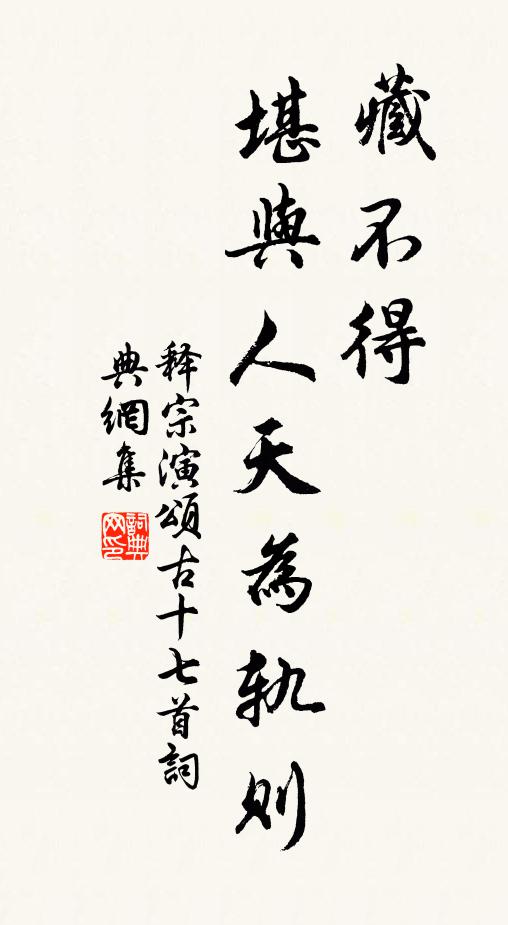 藏不得
堪與人天為軌則
释宗演頌古十七首詞
典網集
詞典
网印